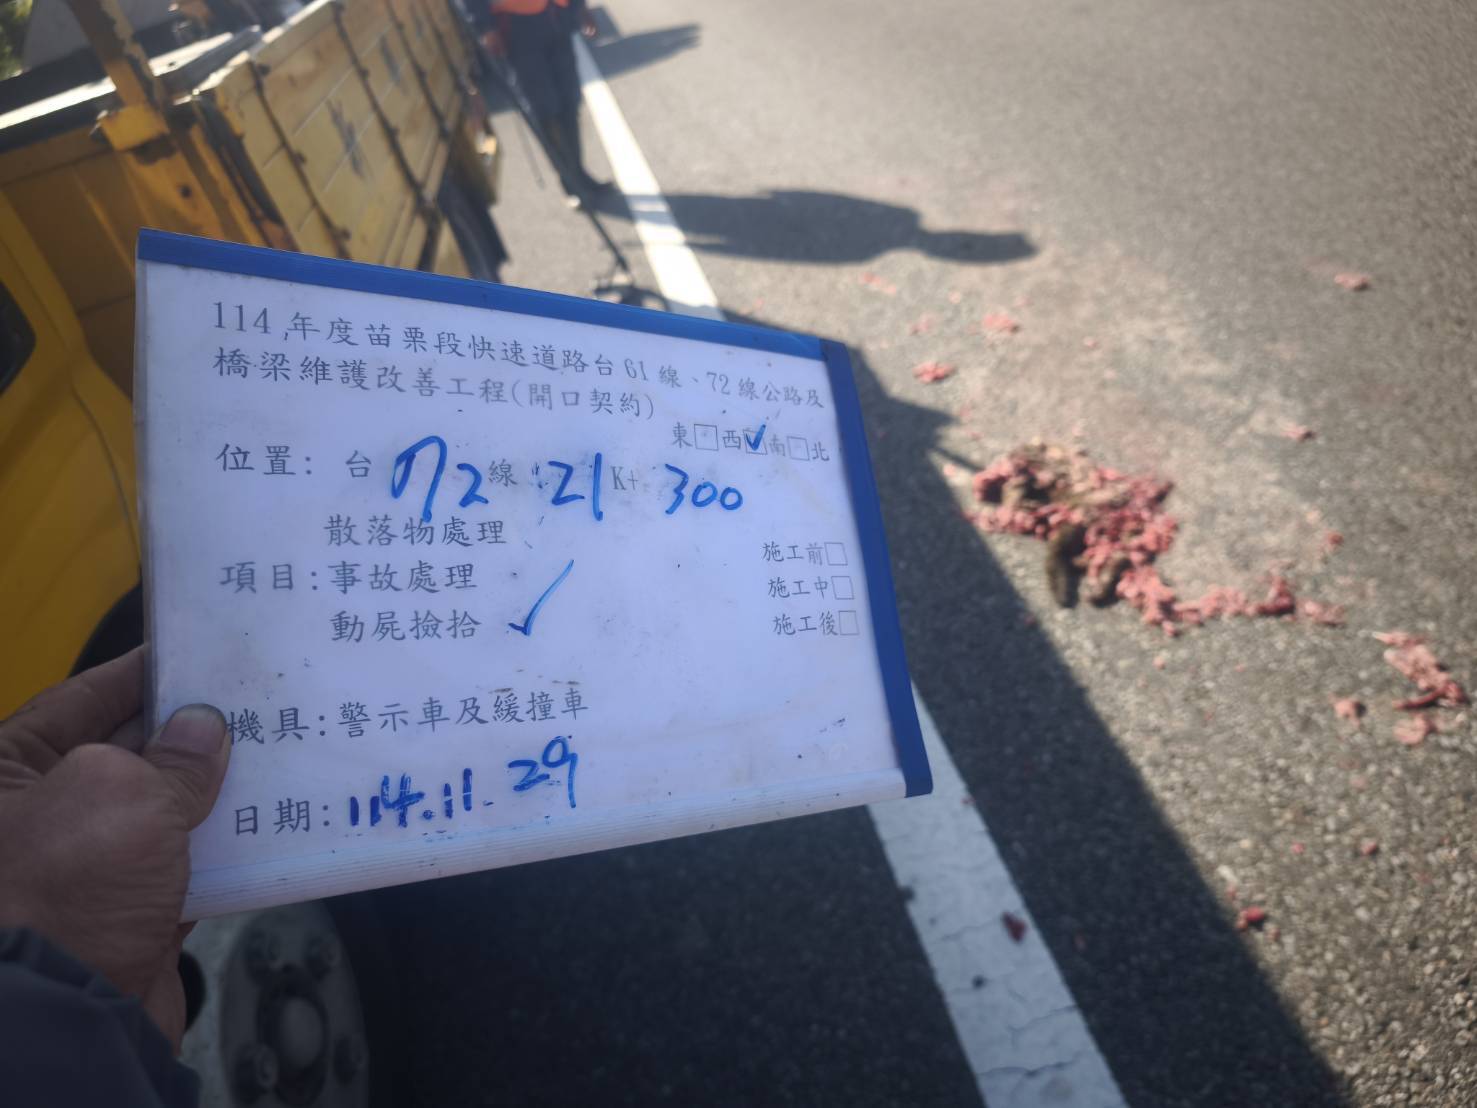 114年度苗栗段快速道路台61線、72線公路及
橋梁維護改善工程(開口契約)
東□西☑南□北
位置: 台72線 21K+300
散落物處理
項目:事故處理
動屍撿拾 ✓
施工前□
施工中□
施工後□
機具:警示車及緩撞車
日期:114.11.29